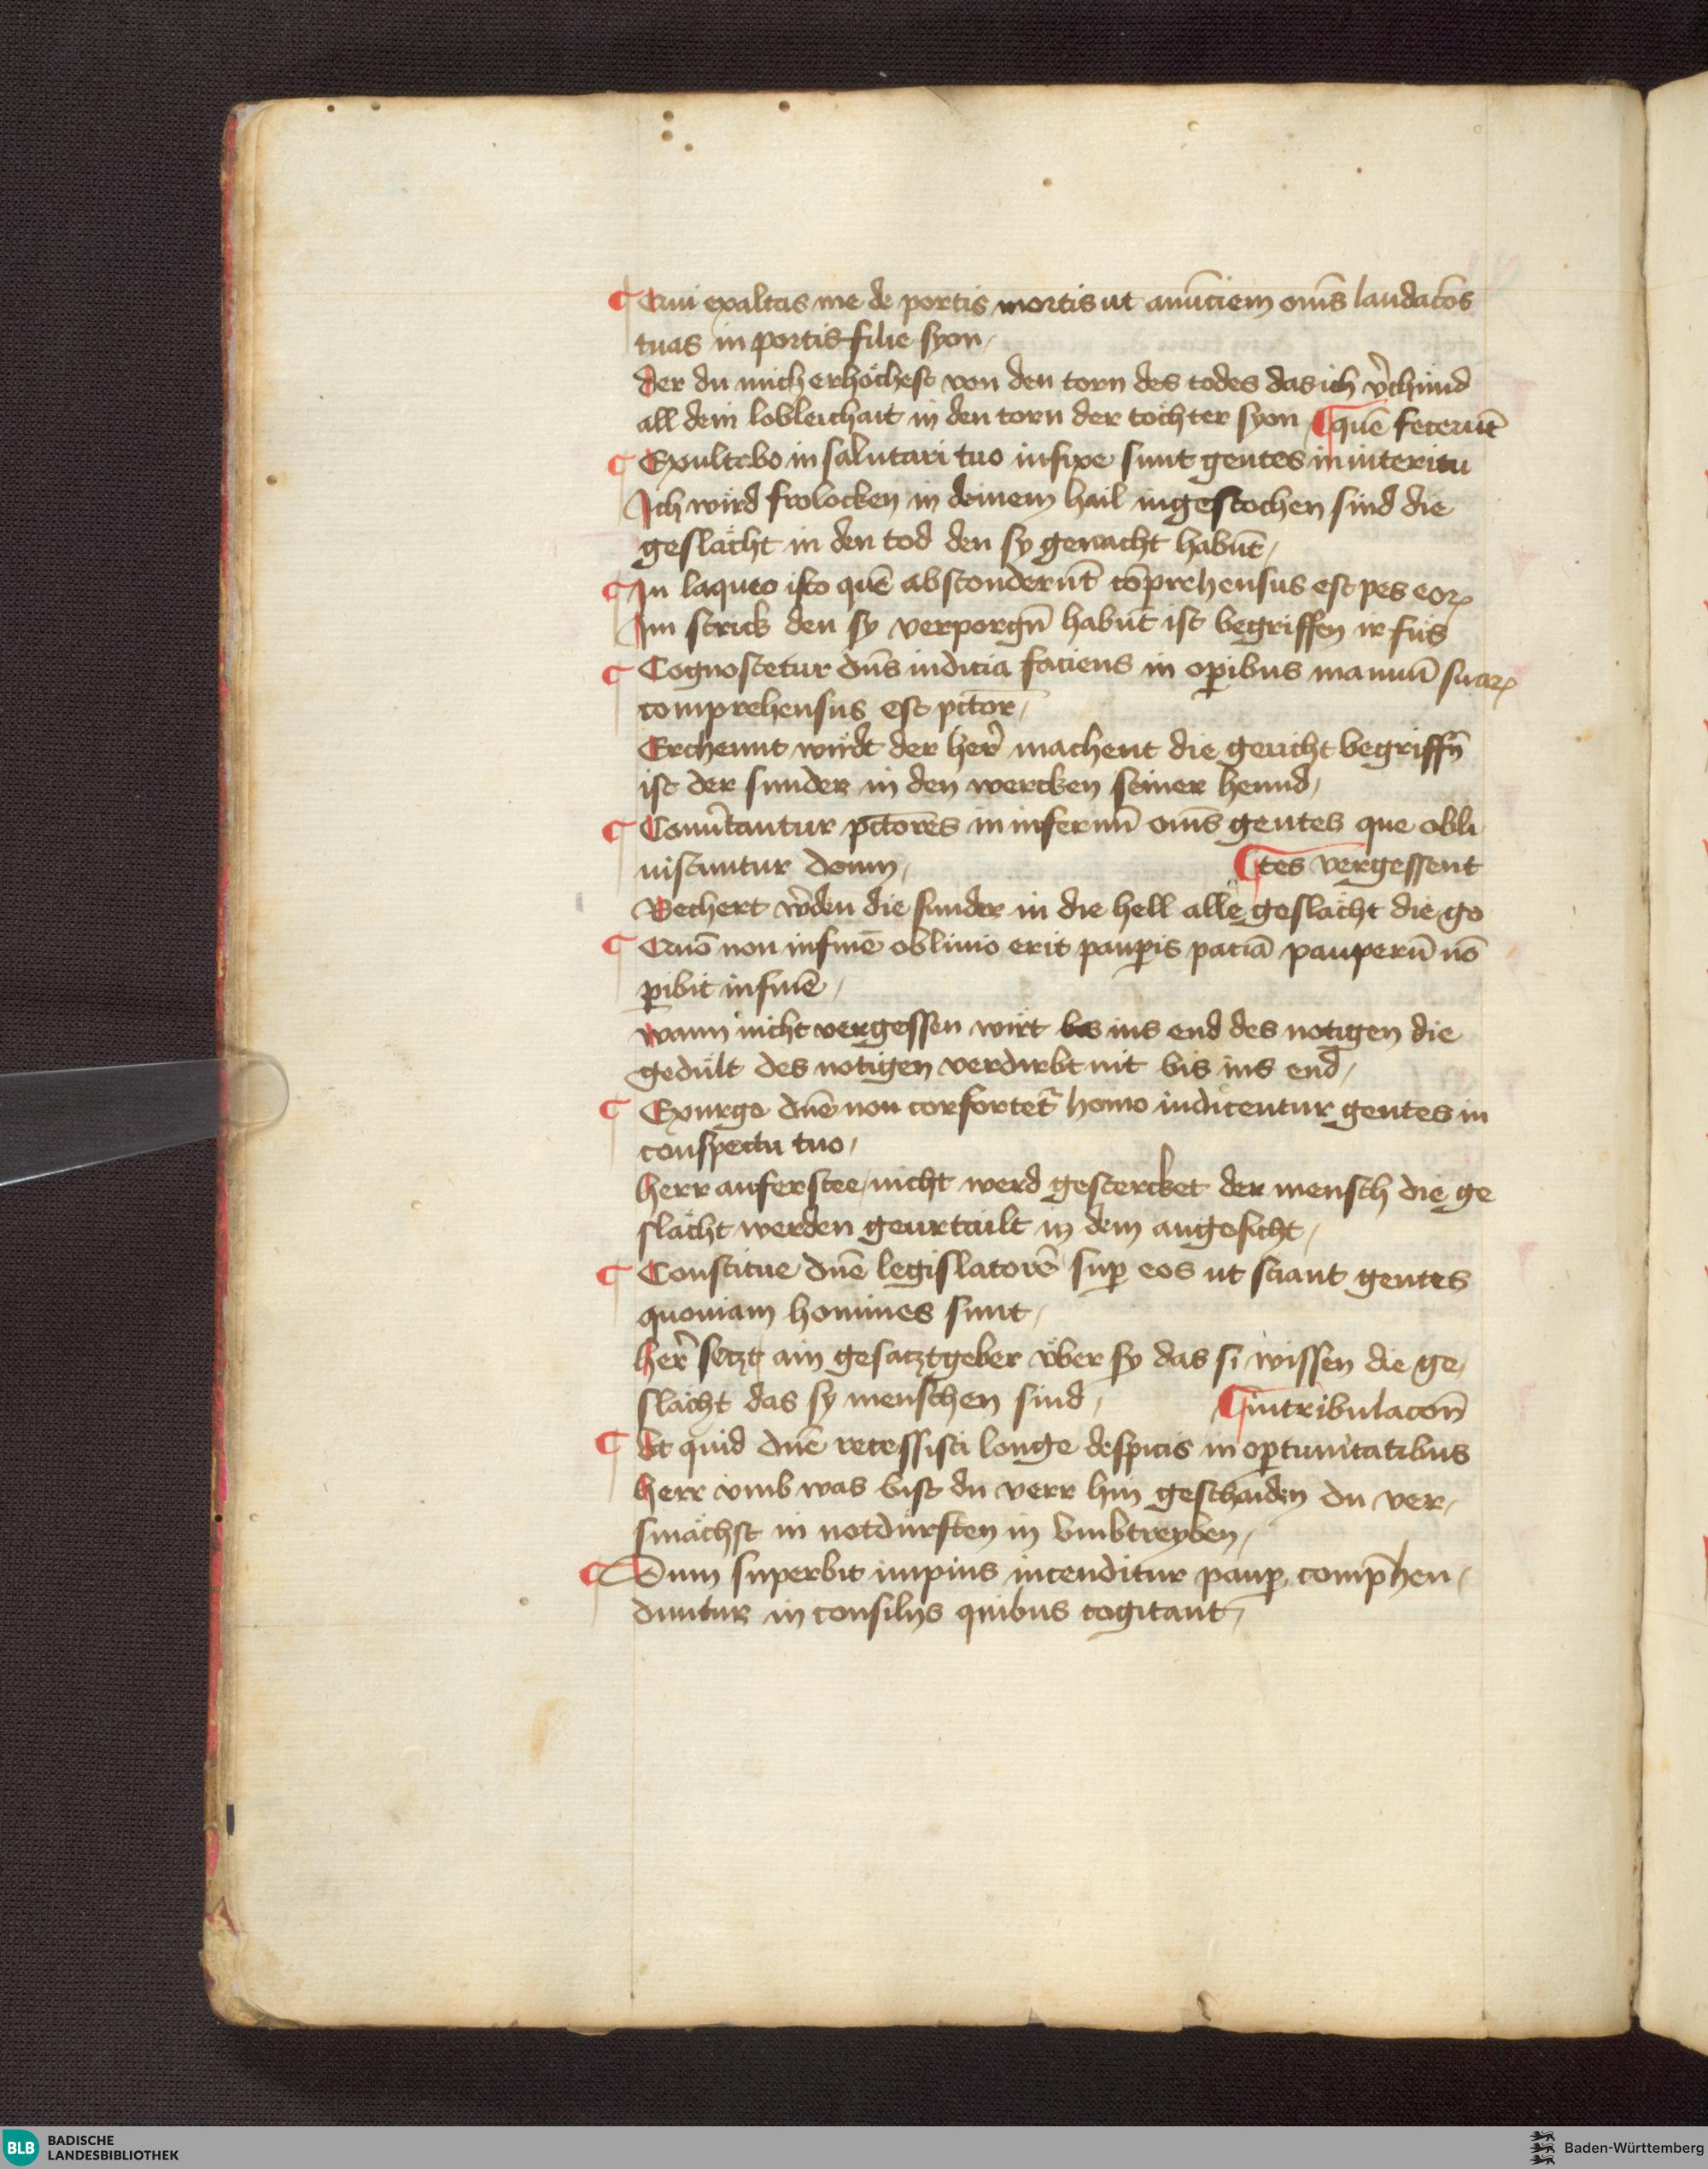 ¶ Qui exaltas me de portis mortis ut anūciem om̄s laudac̄oēs
tuas in portis filie syon /
der du mich erhöchest von den torn des todes das ich v̄chünd
all dein lobleichait in den torn der tochter syon / ¶ quē fecerūt
¶ Exultabo in salutari tuo infixe sunt gentes in interitu
Ich wird frolocken in deinem hail ingestochen sind die
geslächt in den tod den sy gemacht habūt /
¶ In laqueo isto quē absconderūt cōprehensus est pes eoꝝ
Im strick den sy verporgn̄ habūt ist begriffen ir fūs
¶ Cognoscetur dn̄s iudicia faciens in oꝑibus manuū suaꝝ
comprehensus est pctor̄ /
Erchennt wirdt der her̄ machent die gericht begriffn̄
ist der sunder in den wercken seiner hennd /
¶ Conūtantur pctores in infernū om̄s gentes que obli
uiscuntur deum / ¶ tes vergessent
Bechert w̄den die sunder in die hell alle geslächt die go
¶ Qm̄ non in finē obliuio erit pauꝑis paciā pauperū nō
ꝑibit in finē /
wann nicht vergessen wirt bis ins end des notigen die
gedült des notigen verdirbt nit bis ins end /
¶ Exurge dn̄e non confortet᷑ homo iudicentur gentes in
conspectu tuo /
herr aufer stee / nicht werd gestercket der mensch die ge
slächt werden geurtailt in dem angesicht /
¶ Constitue dn̄e legislatorē suꝑ eos ut sciant gentes
quoniam homines sunt /
her̄ setzt ain gesatztgeber vber sy das si wissen die ge /
slächt das sy menschen sind / ¶ in tribulacon̄
¶ Ut quid dn̄e recessisti longe despicis in oꝑtunitatibus
herr vmb was bist du verr hin geschaiden du ver /
smächst in notdurften in vmbtreyben /
¶ Dum superbit impius incenditur pauꝑ comp̄hen /
duntur in consilijs quibus cogitant /
BLB BADISCHE
LANDESBIBLIOTHEK
Baden-Württemberg